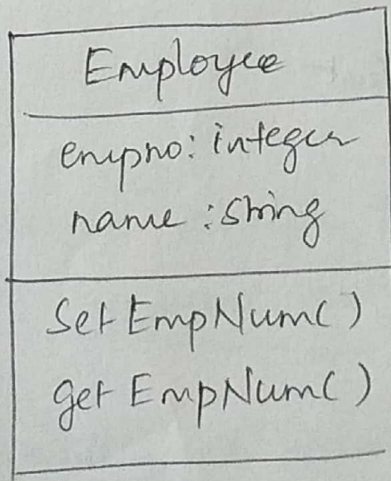 Employee
empno: integer
name : string
Set EmpNum()
get EmpNum()